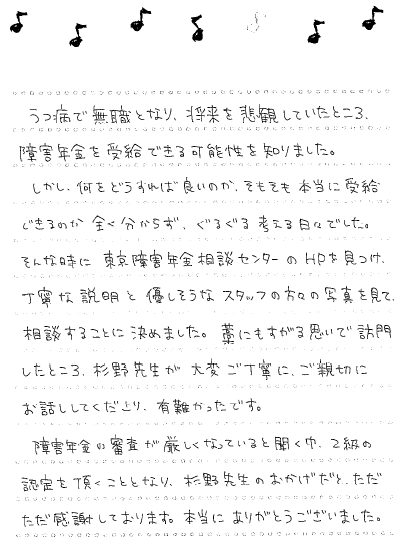 うつ病で無職となり、将来を悲観していたところ、
障害年金を受給できる可能性を知りました。
しかし、何をどうすれば良いのか、そもそも本当に受給
できるのか全く分からず、ぐるぐる考える日々でした。
そんな時に東京障害年金相談センターのHPを見つけ、
丁寧な説明と優しそうなスタッフの方々の写真を見て、
相談することに決めました。藁にもすがる思いで訪問
したところ、杉野先生が大変ご丁寧に、ご親切に
お話ししてくださり、有難かったです。
障害年金の審査が厳しくなっていると聞く中、2級の
認定を頂くこととなり、杉野先生のおかげだと、ただ
ただ感謝しております。本当にありがとうございました。